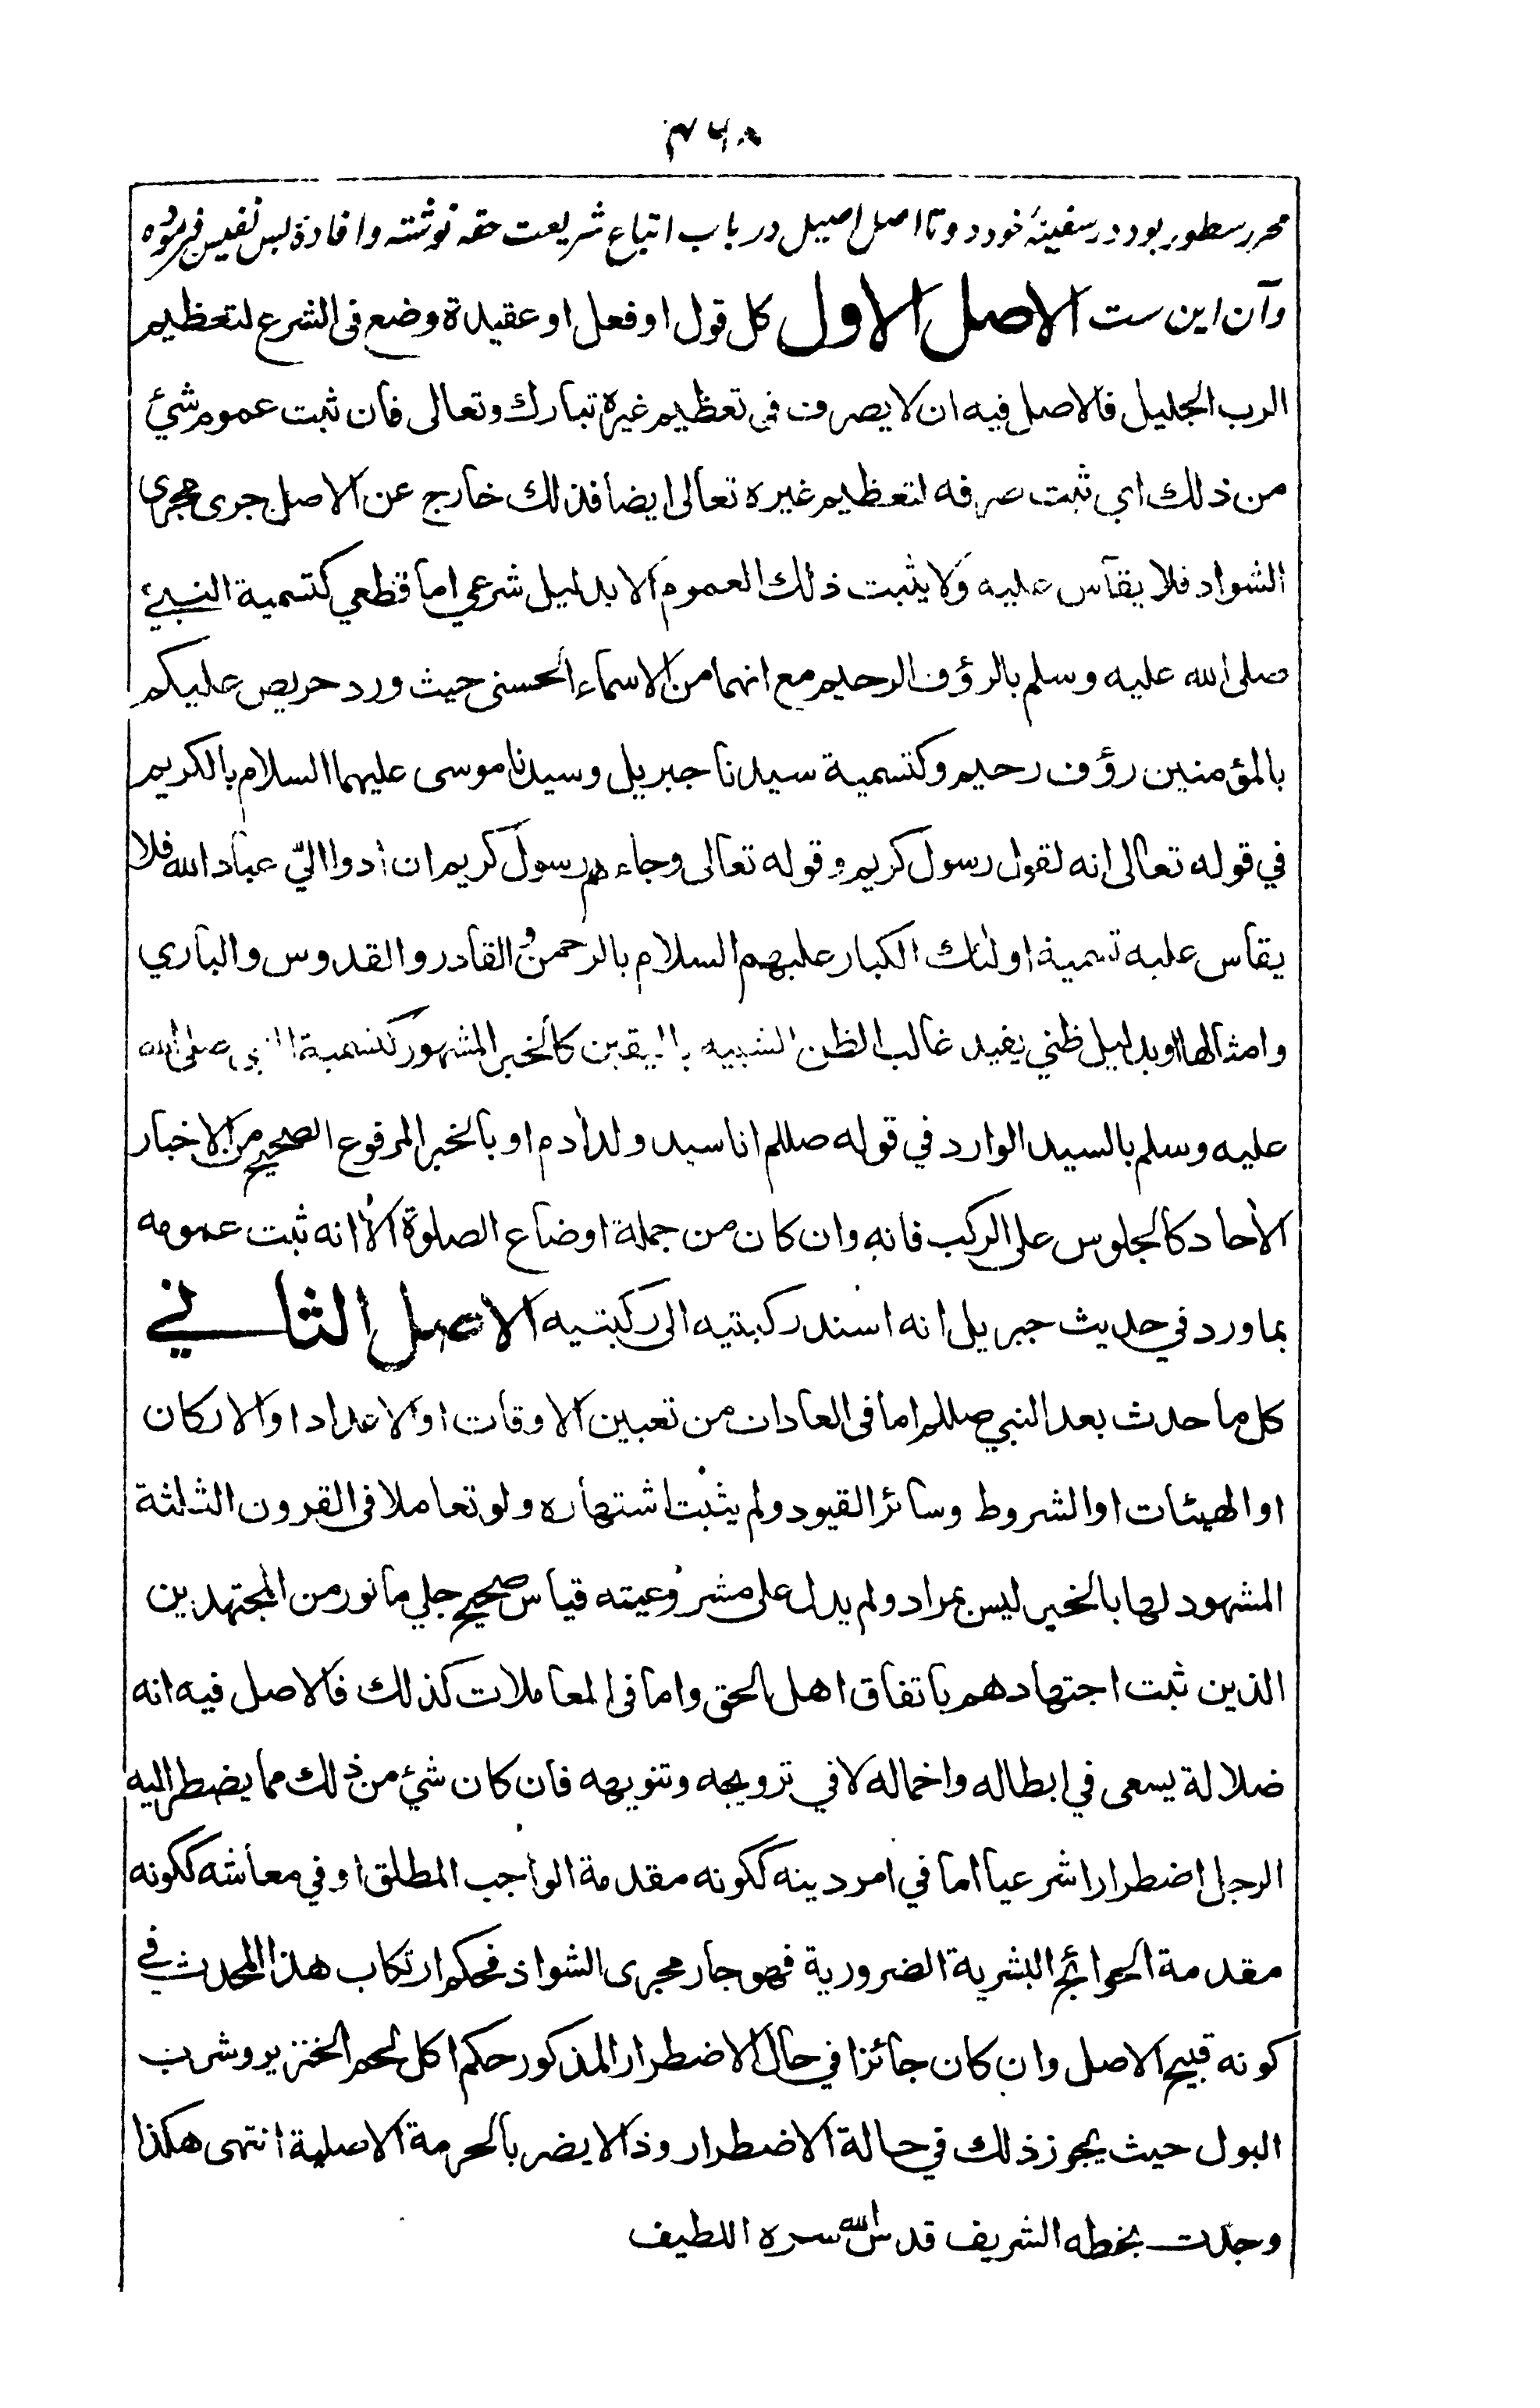 محرر سطور بود در سفینهٔ خود دو تا اصل اصیل در باب اتباع شریعت حقه نوشته و افادۀ بس نفیس فرموده
وآن این ست الاصل الاول كل قول او فعل او عقيدة وضع فى الشرع لتعظيم
الرب الجليل فالاصل فيه ان لا يصرف في تعظيم غيره تبارك وتعالى فان ثبت عموم شئ
من ذلك اي ثبت صرفه لتعظيم غيره تعالى ايضا فذلك خارج عن الاصل جرى مجرى
الشواذ فلا يقاس عليه ولا يثبت ذلك العموم الا بدليل شرعي اما قطعي كتسمية النبي
صلى الله عليه وسلم بالرؤف الرحيم مع انهما من الاسماء الحسنى حيث ورد حريص عليكم
بالمؤمنين رؤف رحيم وكتسمية سيدنا جبريل وسيدنا موسى عليهما السلام بالكريم
في قوله تعالى انه لقول رسول كريم وقوله تعالى وجاءهم رسول كريم ان ادوا اليّ عباد الله فلا
يقاس عليه تسمية اولئك الكبار عليهم السلام بالرحمن والقادر والقدوس والباري
وامثالها او بدليل ظني يفيد غالب الظن الشبيه باليقين كالخبر المشهور كتسمية النبي صلى الله
عليه وسلم بالسيد الوارد في قوله صللم انا سيد ولد أدم او بالخبر المرفوع الصحيح من الاخبار
الأحاد كالجلوس على الركب فانه وان كان من جملة اوضاع الصلوة الا انه ثبت عمومه
بما ورد في حديث جبريل انه اسند ركبتيه الى ركبتيه الاصل الثاني
كل ما حدث بعد النبي صللم اما فى العادات من تعيين الاوقات او الاعداد او الاركان
او الهيئات او الشروط وسائر القيود ولم يثبت اشتهاره ولو تعاملا فى القرون الثلثة
المشهود لها بالخير ليس بمراد ولم يدل على مشروعيته قياس صحيح جلي مانور من المجتهدين
الذين ثبت اجتهادهم باتفاق اهل الحق واما فى المعاملات كذلك فالاصل فيه انه
ضلالة يسعى في ابطاله واخماله لا في ترويجه وتنويهه فان كان شئ من ذلك مما يضطر اليه
الرجل اضطرارا شرعيا اما في امر دينه ككونه مقدمة الواجب المطلق او في معاشه ككونه
مقدمة الحوائج البشرية الضرورية فهو جار مجرى الشواذ فحكم ارتكاب هذا المحدث في
كونه قبيح الاصل وان كان جائزا في حال الاضطرار المذكور حكم اكل لحم الخنزير وشرب
البول حيث يجوز ذلك في حالة الاضطرار وذا لا يضر بالحرمة الاصلية انتهى هكذا
وجدت بخطه الشريف قدس الله سره اللطيف